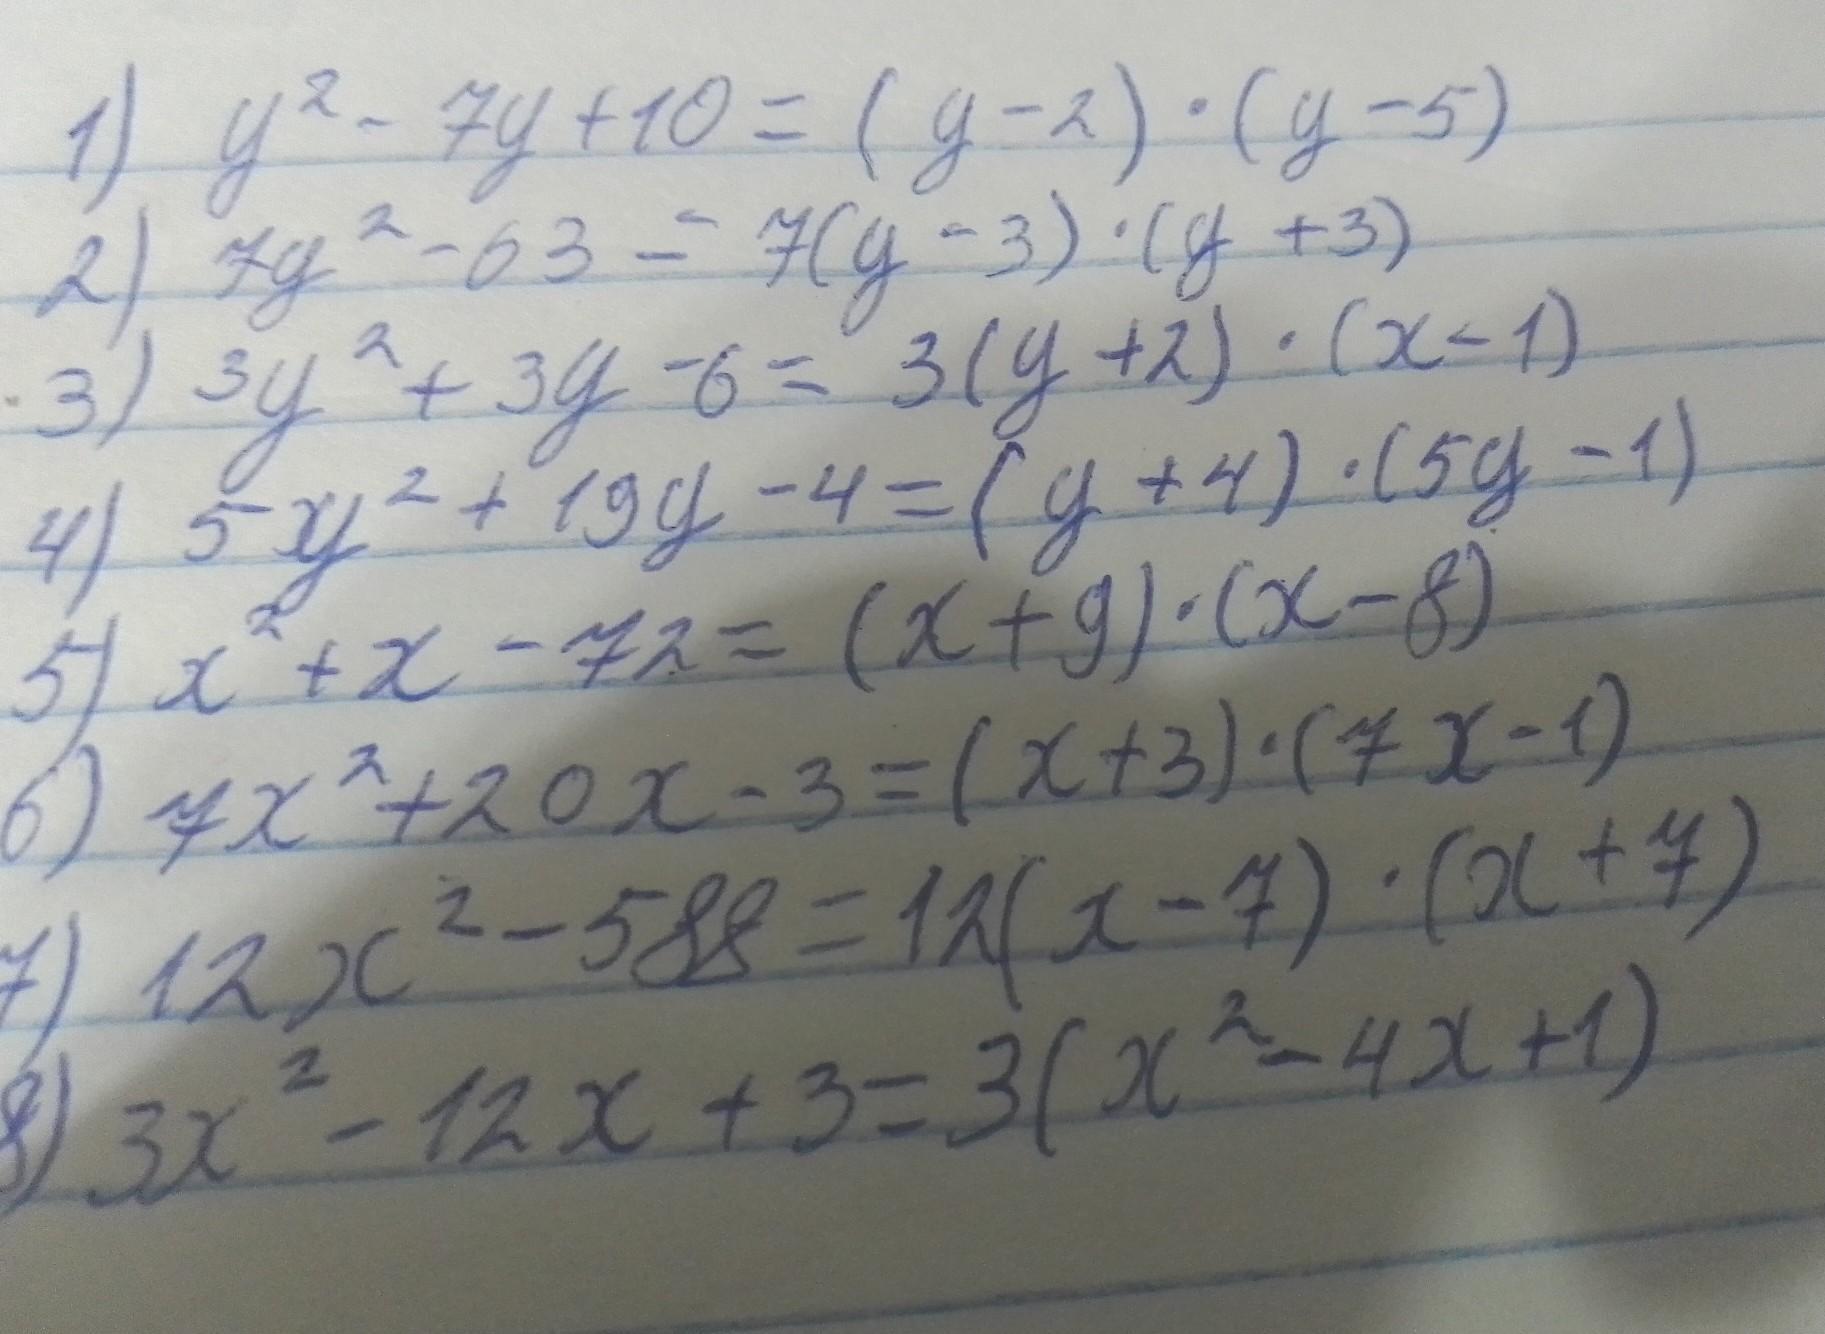 1) y² - 7y + 10 = (y - 2) · (y - 5)
2) 7y² - 63 = 7(y - 3) · (y + 3)
3) 3y² + 3y - 6 = 3(y + 2) · (x - 1)
4) 5xy² + 19y - 4 = (y + 4) · (5y - 1)
5) x² + x - 72 = (x + 9) · (x - 8)
6) 7x² + 20x - 3 = (x + 3) · (7x - 1)
7) 12x² - 588 = 12(x - 7) · (x + 7)
8) 3x² - 12x + 3 = 3(x² - 4x + 1)